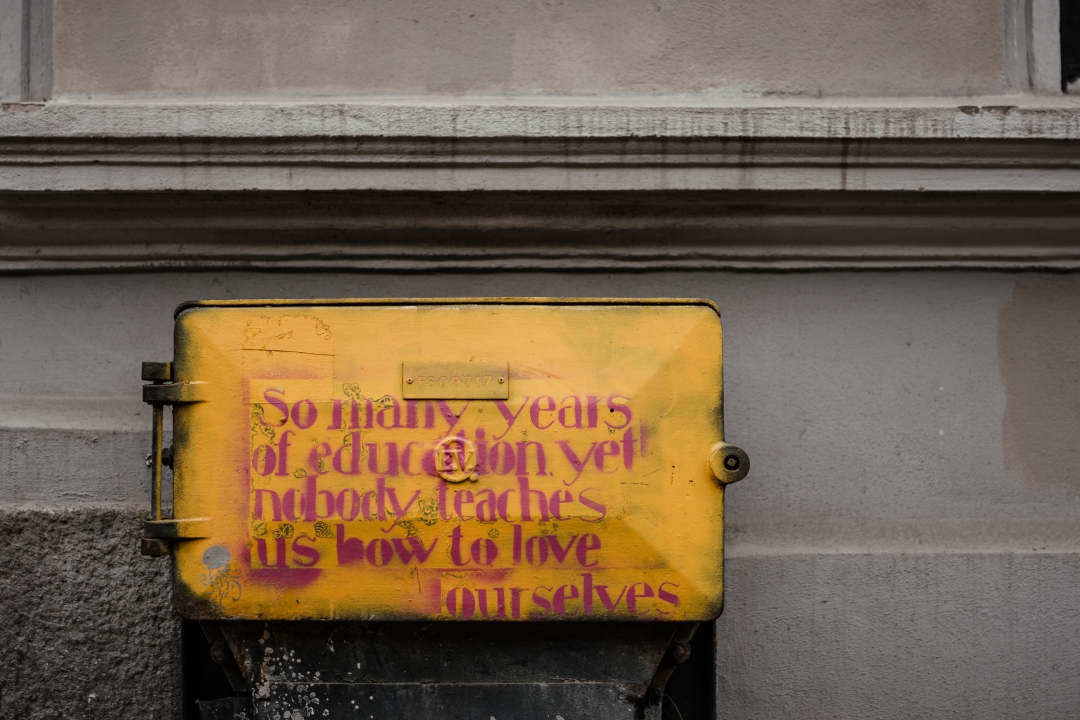 So many years
of education yet
nobody teaches
us how to love
ourselves